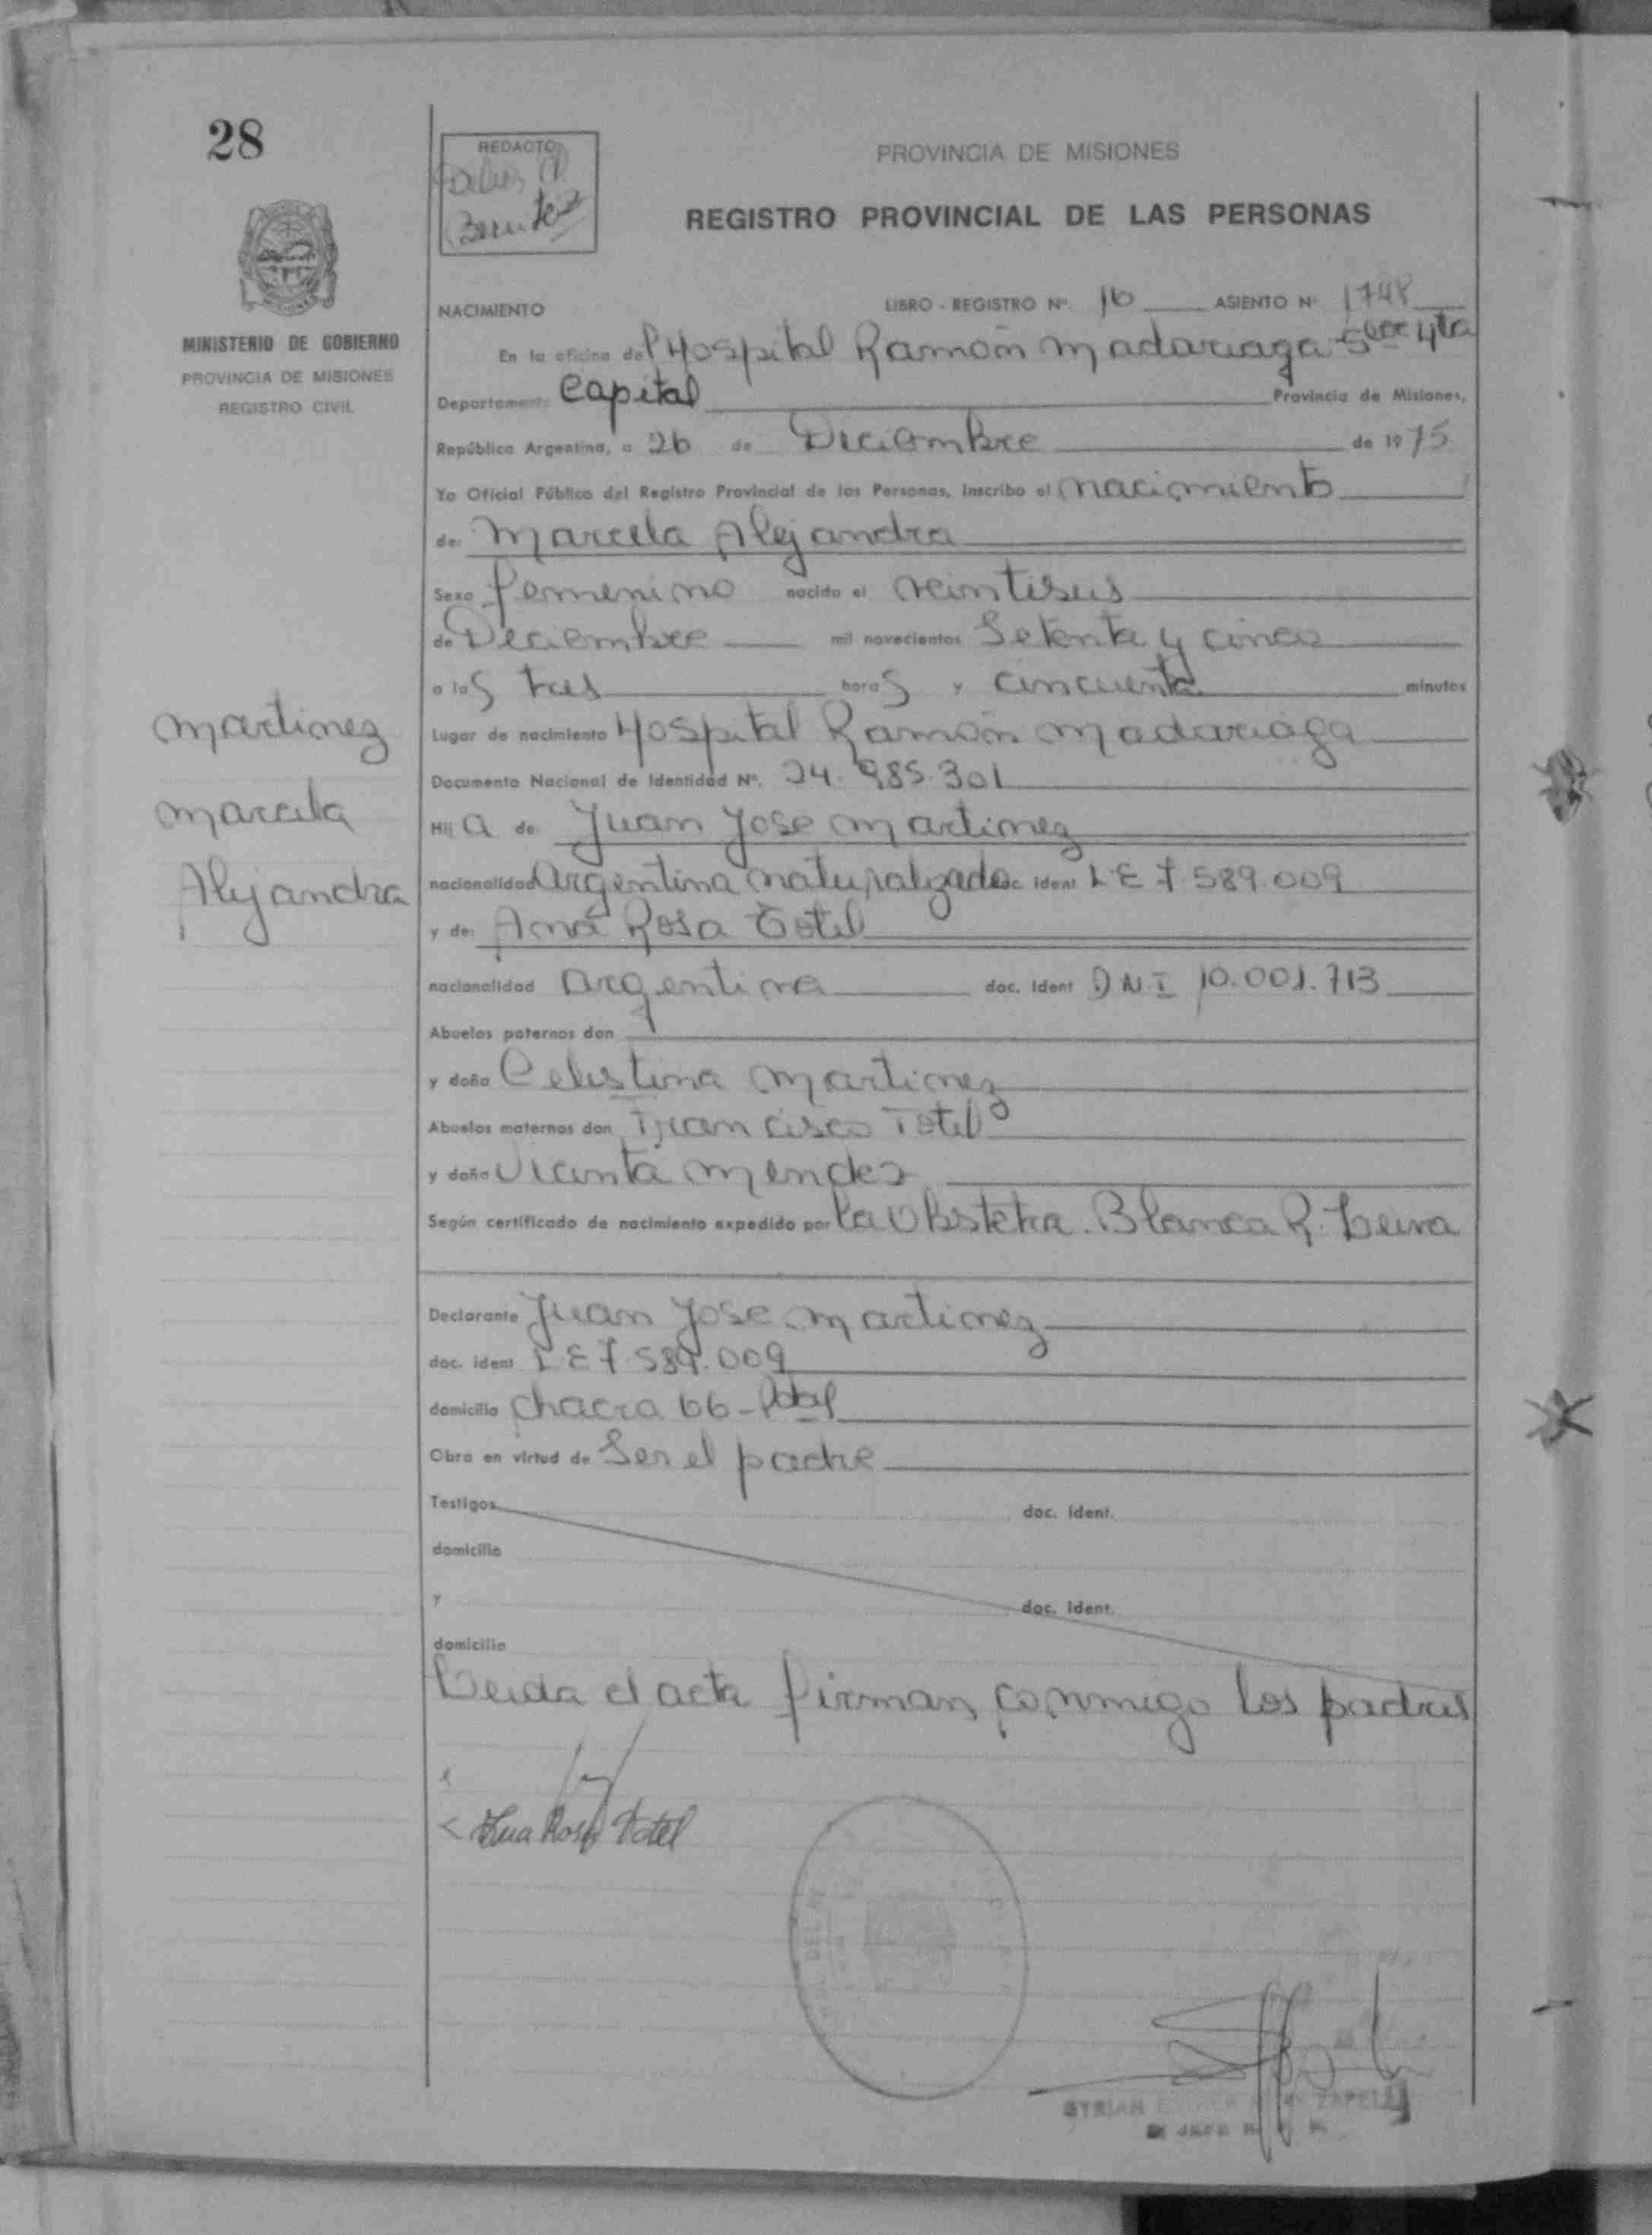 28
REDACTO:
Benitez
PROVINCIA DE MISIONES
REGISTRO PROVINCIAL DE LAS PERSONAS
MINISTERIO DE GOBIERNO
PROVINCIA DE MISIONES
REGISTRO CIVIL
NACIMIENTO LIBRO - REGISTRO Nº. 16 ASIENTO Nº 1748
En la oficina del Hospital Ramón Madariaga 4ta
Departamento Capital Provincia de Misiones,
República Argentina, a 26 de Diciembre de 1975
Yo Oficial Público del Registro Provincial de las Personas, inscribo el nacimiento
de: Marcela Alejandra
Sexo femenino nacido el veintiseis
de Diciembre mil novecientos Setenta y cinco
a las tres horas y cincuenta minutos
Lugar de nacimiento Hospital Ramón Madariaga
Documento Nacional de Identidad Nº. 24.985.301
Hija de: Juan Jose Martinez
nacionalidad Argentina naturalizado doc. Ident L E 7.589.009
y de: Ana Rosa Totil
nacionalidad argentina doc. Ident D N I 10.001.713
Abuelos paternos don
y doña Celestina Martinez
Abuelos maternos don Francisco Totil
y doña Mendez
Según certificado de nacimiento expedido por la Obstetra. Blanca R. Leiva
Declarante Juan Jose Martinez
doc. ident L E 7.589.009
domicilio Chacra 66 - Pdas
Obra en virtud de Ser el padre
Testigos doc. Ident.
domicilio
y doc. Ident.
domicilio
Leida el acta firman conmigo los padres
Ana Rosa Totil
Martinez
Marcela
Alejandra